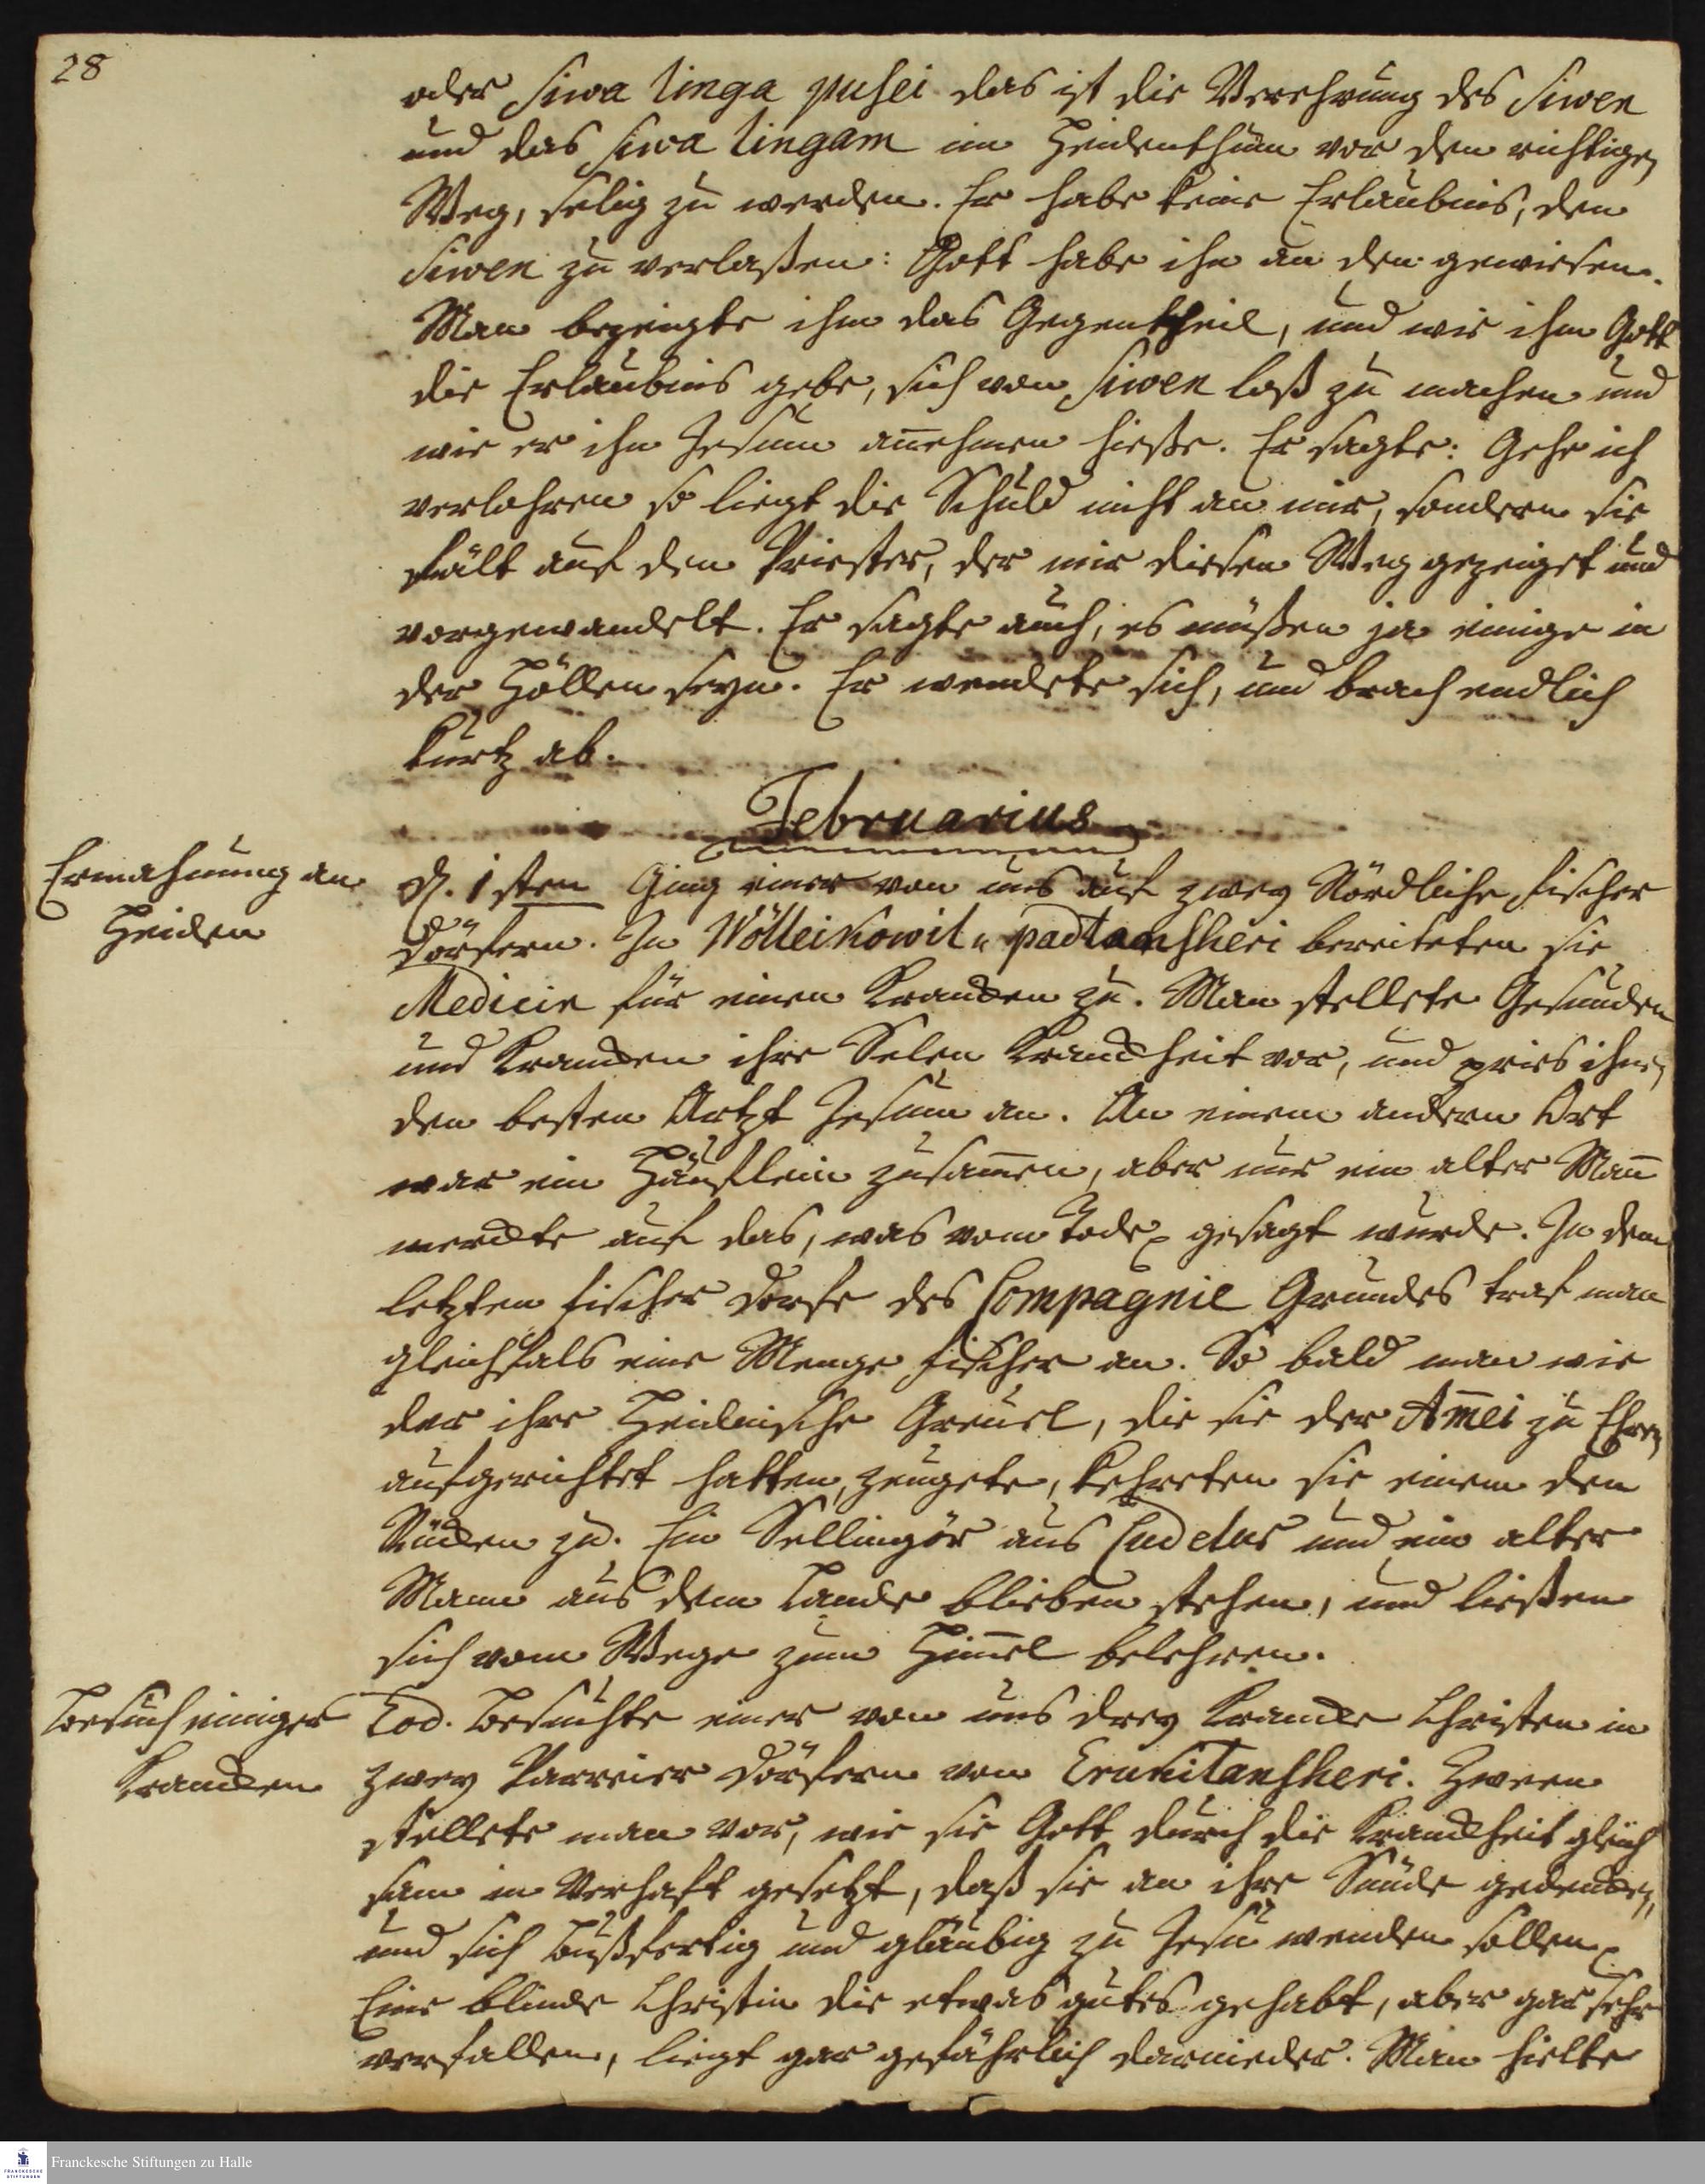 28
oder Siwa linga pusei das ist die Verehrung des Siwen
und das Siwa lingam im Heidenthum vor den richtigen
Weg, selig zu werden. Er habe keine Erlaubnis, den
Siwen zu verlaßen: Gott habe ihn an den gewiesen.
Man bezeugte ihm das Gegentheil, und wie ihm Gott
die Erlaubnis gebe, sich von Siwen loß zu machen und
wie er ihn Jesum annehmen hieße. Er sagte: Gehe ich
verlohren so liegt die Schuld nicht an mir, sondern sie
fält auf den Priester, der mir diesen Weg gezeiget und
vorgewandelt. Er sagte auch, es müßen ja einige in
der Höllen seyn. Er wendete sich, und brach endlich
kurtz ab.
Februarius
Ermahnung an
Heiden
d. 1sten Ging einer von uns auf zwey Nördliche Fischer
Dörfern. In Wölleikowil padtanscheri bereiteten sie
Medicin für einen Krancken zu. Man stellete Gesunden
und Krancken ihre Selen Kranckheit vor, und pries ihnen
den besten Artzt Jesum an. An einem andern Ort
war ein Häuflein zusamen, aber nur ein alter Man
merckte auf das, was vom Tode gesagt wurde. In dem
letzten Fischer Dorfe des Compagnie Grundes traf man
gleichfals eine Menge Fischer an. So bald man wie
der ihre Heidnische Greuel, die sie der Amei zu Ehren
aufgerichtet hatten, zeugete, kehreten sie einem den
Rücken zu. Ein Sellingör aus Cudelur und ein alter
Mann aus dem Lande blieben stehen, und ließen
sich vom Wege zum Himel belehren.
Besuch einiger
Krancken
Eod. Besuchte einer von uns drey Krancke Christen in
zwey Parreier Dörfern von Erukitanscheri. Zween
stellete man vor, wie sie Gott durch die Kranckheit gleich
sam in Verhaft gesetzt, daß sie an ihre Sünde gedencken,
und sich bußfertig und gläubig zu Jesu wenden sollen.
Eine blinde Christin die etwas gutes gehabt, aber gar sehr
verfallen, liegt gar gefährlich darnieder. Man hielte
Franckesche Stiftungen zu Halle